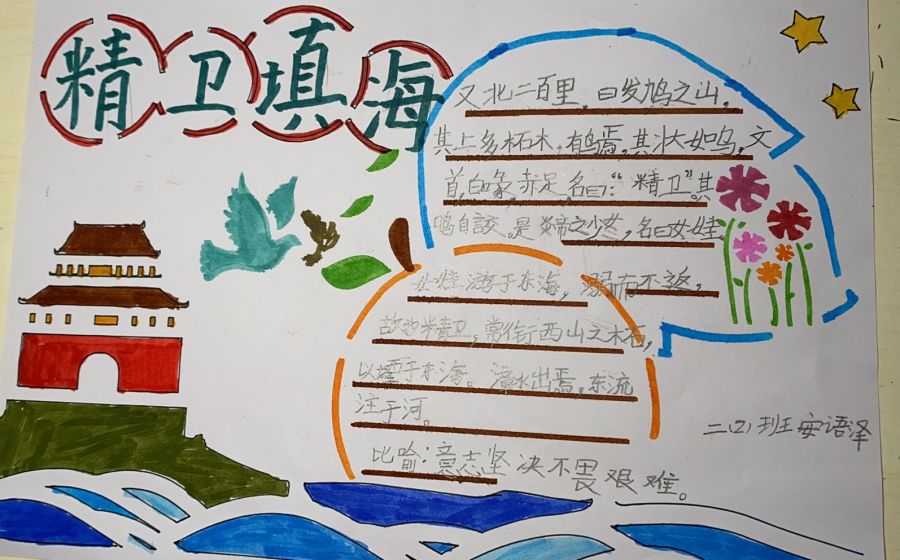 精卫填海
又北二百里,曰发鸠之山,
其上多柘木,有鸟焉,其状如鸟,文
首,白喙,赤足,名曰:“精卫”。其
鸣自詨。是炎帝之少女,名曰女娃。
女娃游于东海,溺而不返,
故为精卫,常衔西山之木石,
以堙于东海。漳水出焉,东流
注于河。
比喻:意志坚决不畏艰难。
二(2)班 安语泽